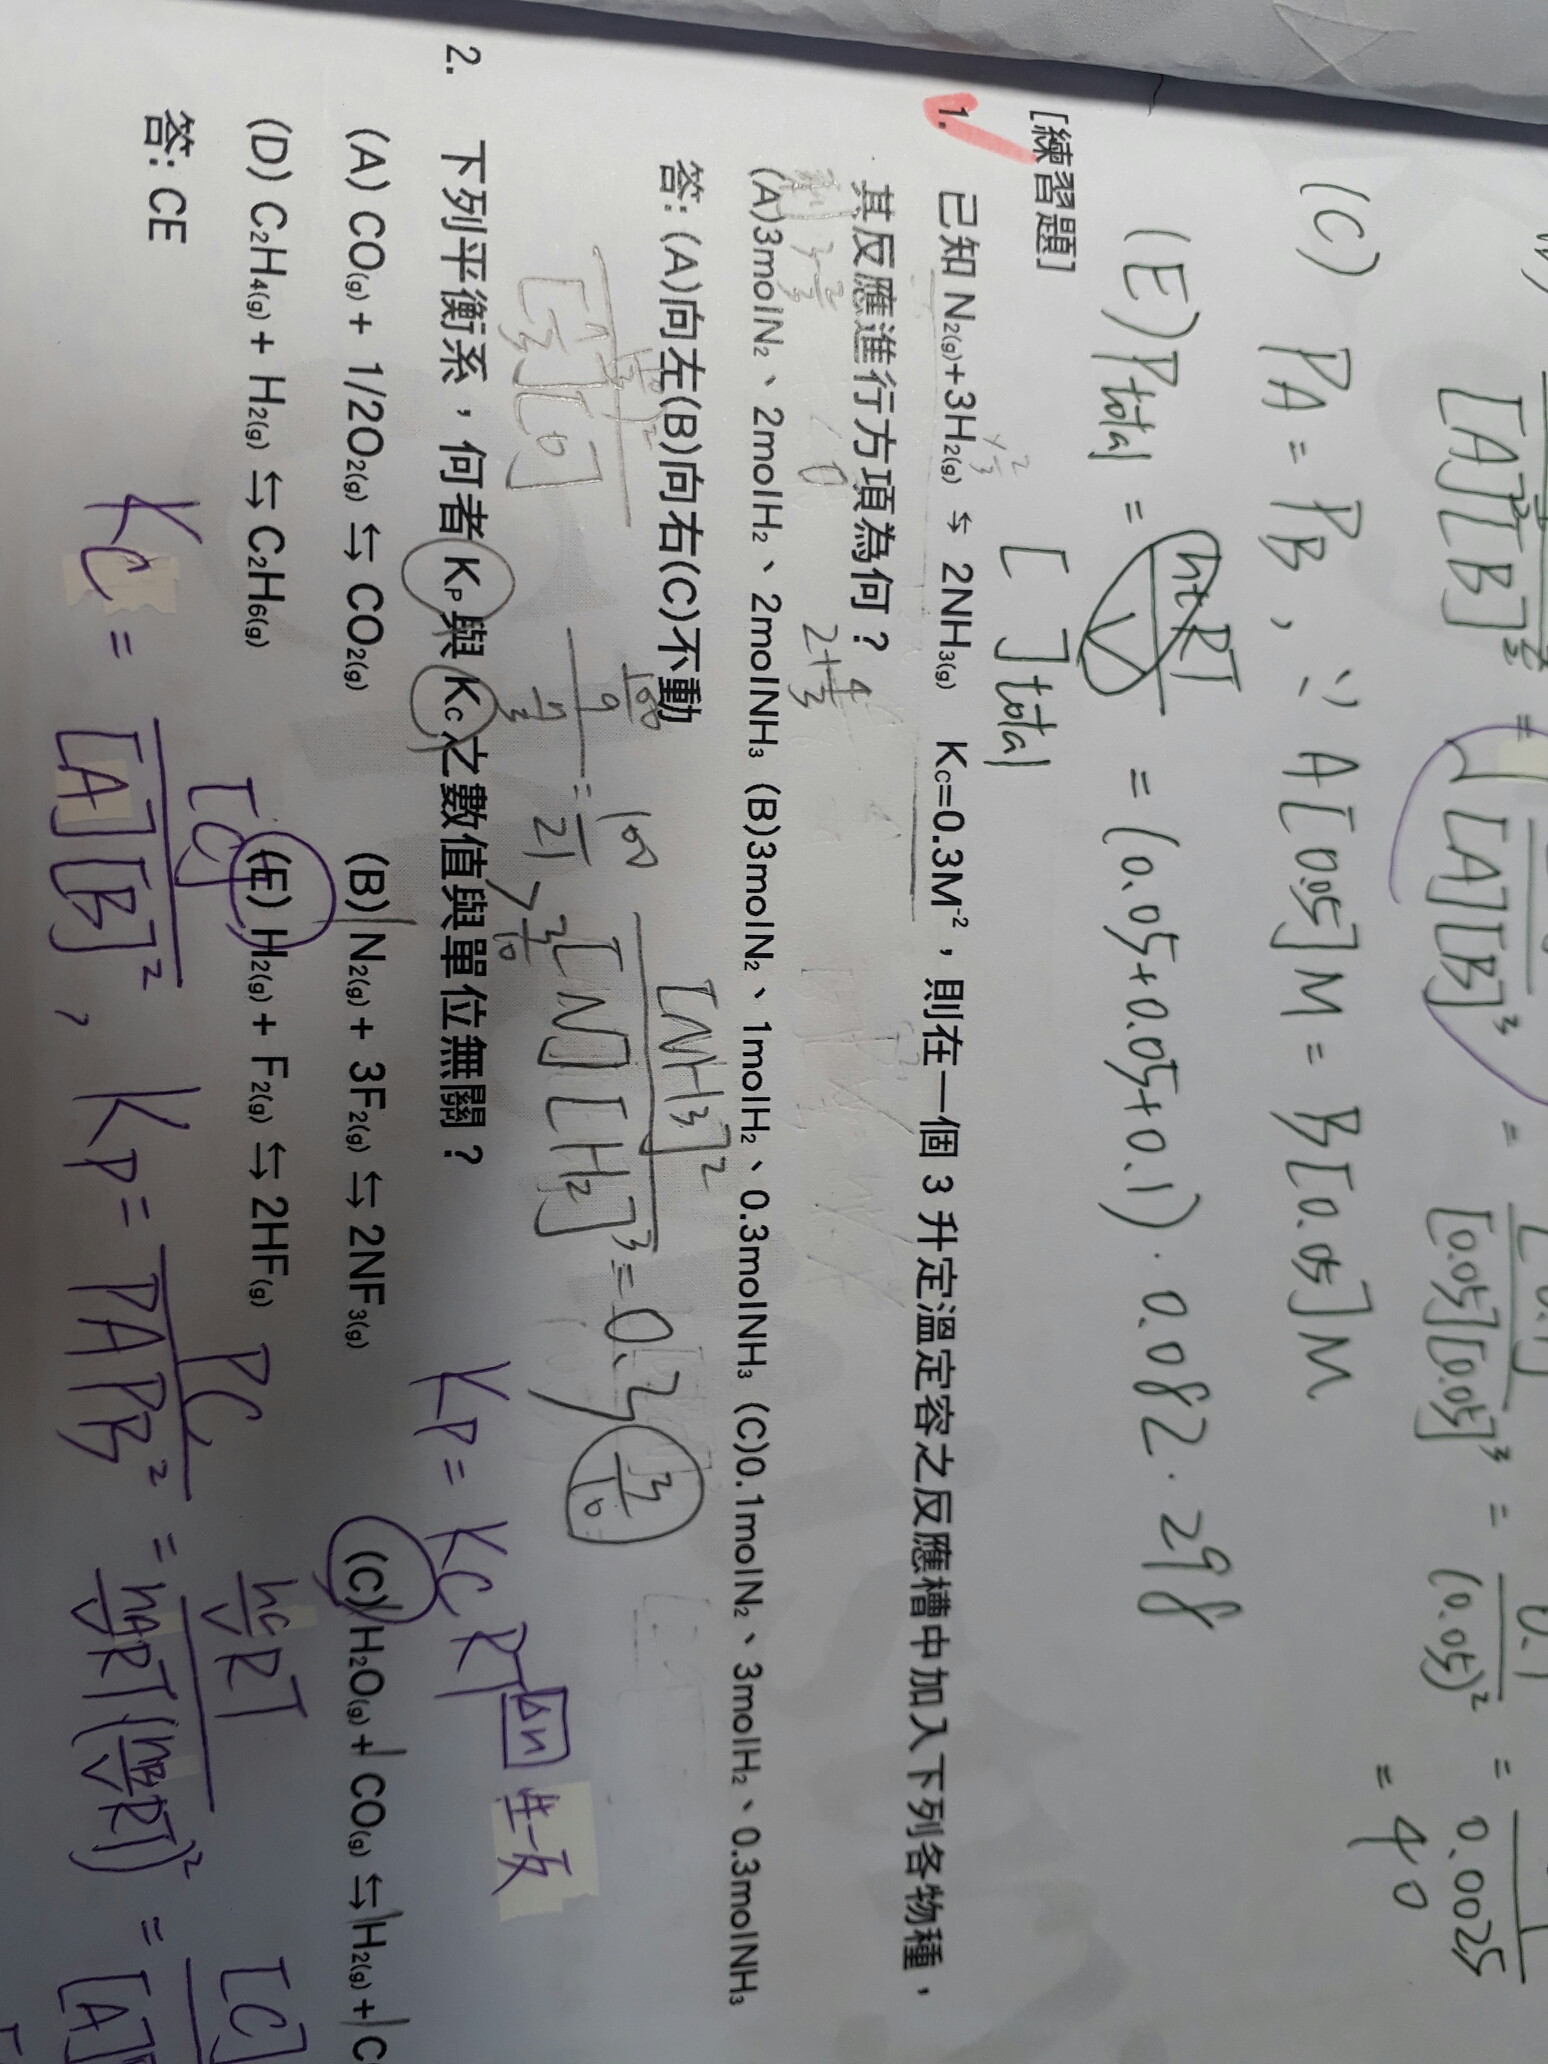 [A]²[B]² = [A][B]³ = [0.05][0.05]³ = (0.05)² = 0.0025
= 40
(C) PA = PB , ∴ A[0.05]M = B[0.05]M
(E) Ptotal = ntRT/V = (0.05+0.05+0.1)·0.082·298
[ ]total
[練習題]
1. 已知 N₂(g)+3H₂(g) ⇆ 2NH₃(g) Kc=0.3M⁻²，則在一個 3 升定溫定容之反應槽中加入下列各物種，
其反應進行方項為何？
(A)3molN₂、2molH₂、2molNH₃ (B)3molN₂、1molH₂、0.3molNH₃ (C)0.1molN₂、3molH₂、0.3molNH₃
答: (A)向左(B)向右(C)不動
[NH₃]²/[N][H₂]³ = 0.3 3/10
100/21 > 3/10
2. 下列平衡系，何者 KP 與 KC 之數值與單位無關？
KP = KC RT^Δn 生-反
(A) CO(g) + 1/2O₂(g) ⇆ CO₂(g) (B) N₂(g) + 3F₂(g) ⇆ 2NF₃(g) (C) H₂O(g) + CO(g) ⇆ H₂(g) +
(D) C₂H₄(g) + H₂(g) ⇆ C₂H₆(g) (E) H₂(g) + F₂(g) ⇆ 2HF(g)
答: CE
KC = [C]/[A][B]² , KP = PC/PAPB² = nC/V RT / nA/V RT(nB/V RT)² = [C]/[A]